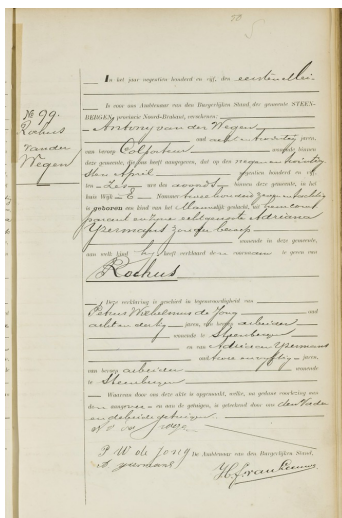 Nº 99.
Rochus
van der
Wegen
In het jaar negentien honderd en vijf, den eersten Mei
is voor ons Ambtenaar van den Burgerlijken Stand, der gemeente STEEN-
BERGEN, provincie Noord-Brabant, verschenen:
Antonij van der Wegen
oud acht en twintig jaren,
van beroep wonende binnen
deze gemeente, die ons heeft aangegeven, dat op den negen en twintig
sten April negentien honderd en vijf
ten zes ure des avonds binnen deze gemeente, in het
huis Wijk E Nummer twee honderd zeven en tachtig
is geboren een kind van het Mannelijk geslacht, uit hem com
parant en zijne echtgenote Adriana
IJzermans zonder beroep
wonende in deze gemeente,
aan welk kind hij heeft verklaard den voornaam te geven van
Rochus
Deze verklaring is geschied in tegenwoordigheid van
Petrus Wilhelmus de Jong oud
acht en dertig jaren, van beroep arbeider
wonende te Steenbergen
en van Adriaan IJzermans
oud twee en vijftig jaren,
van beroep arbeider wonende
te Steenbergen
Waarvan door ons deze akte is opgemaakt, welke, na gedane voorlezing aan
den aangever en aan de getuigen, is geteekend door ons den Vader
en de beide getuigen.
P W de Jong De Ambtenaar van den Burgerlijken Stand,
A ijzermans